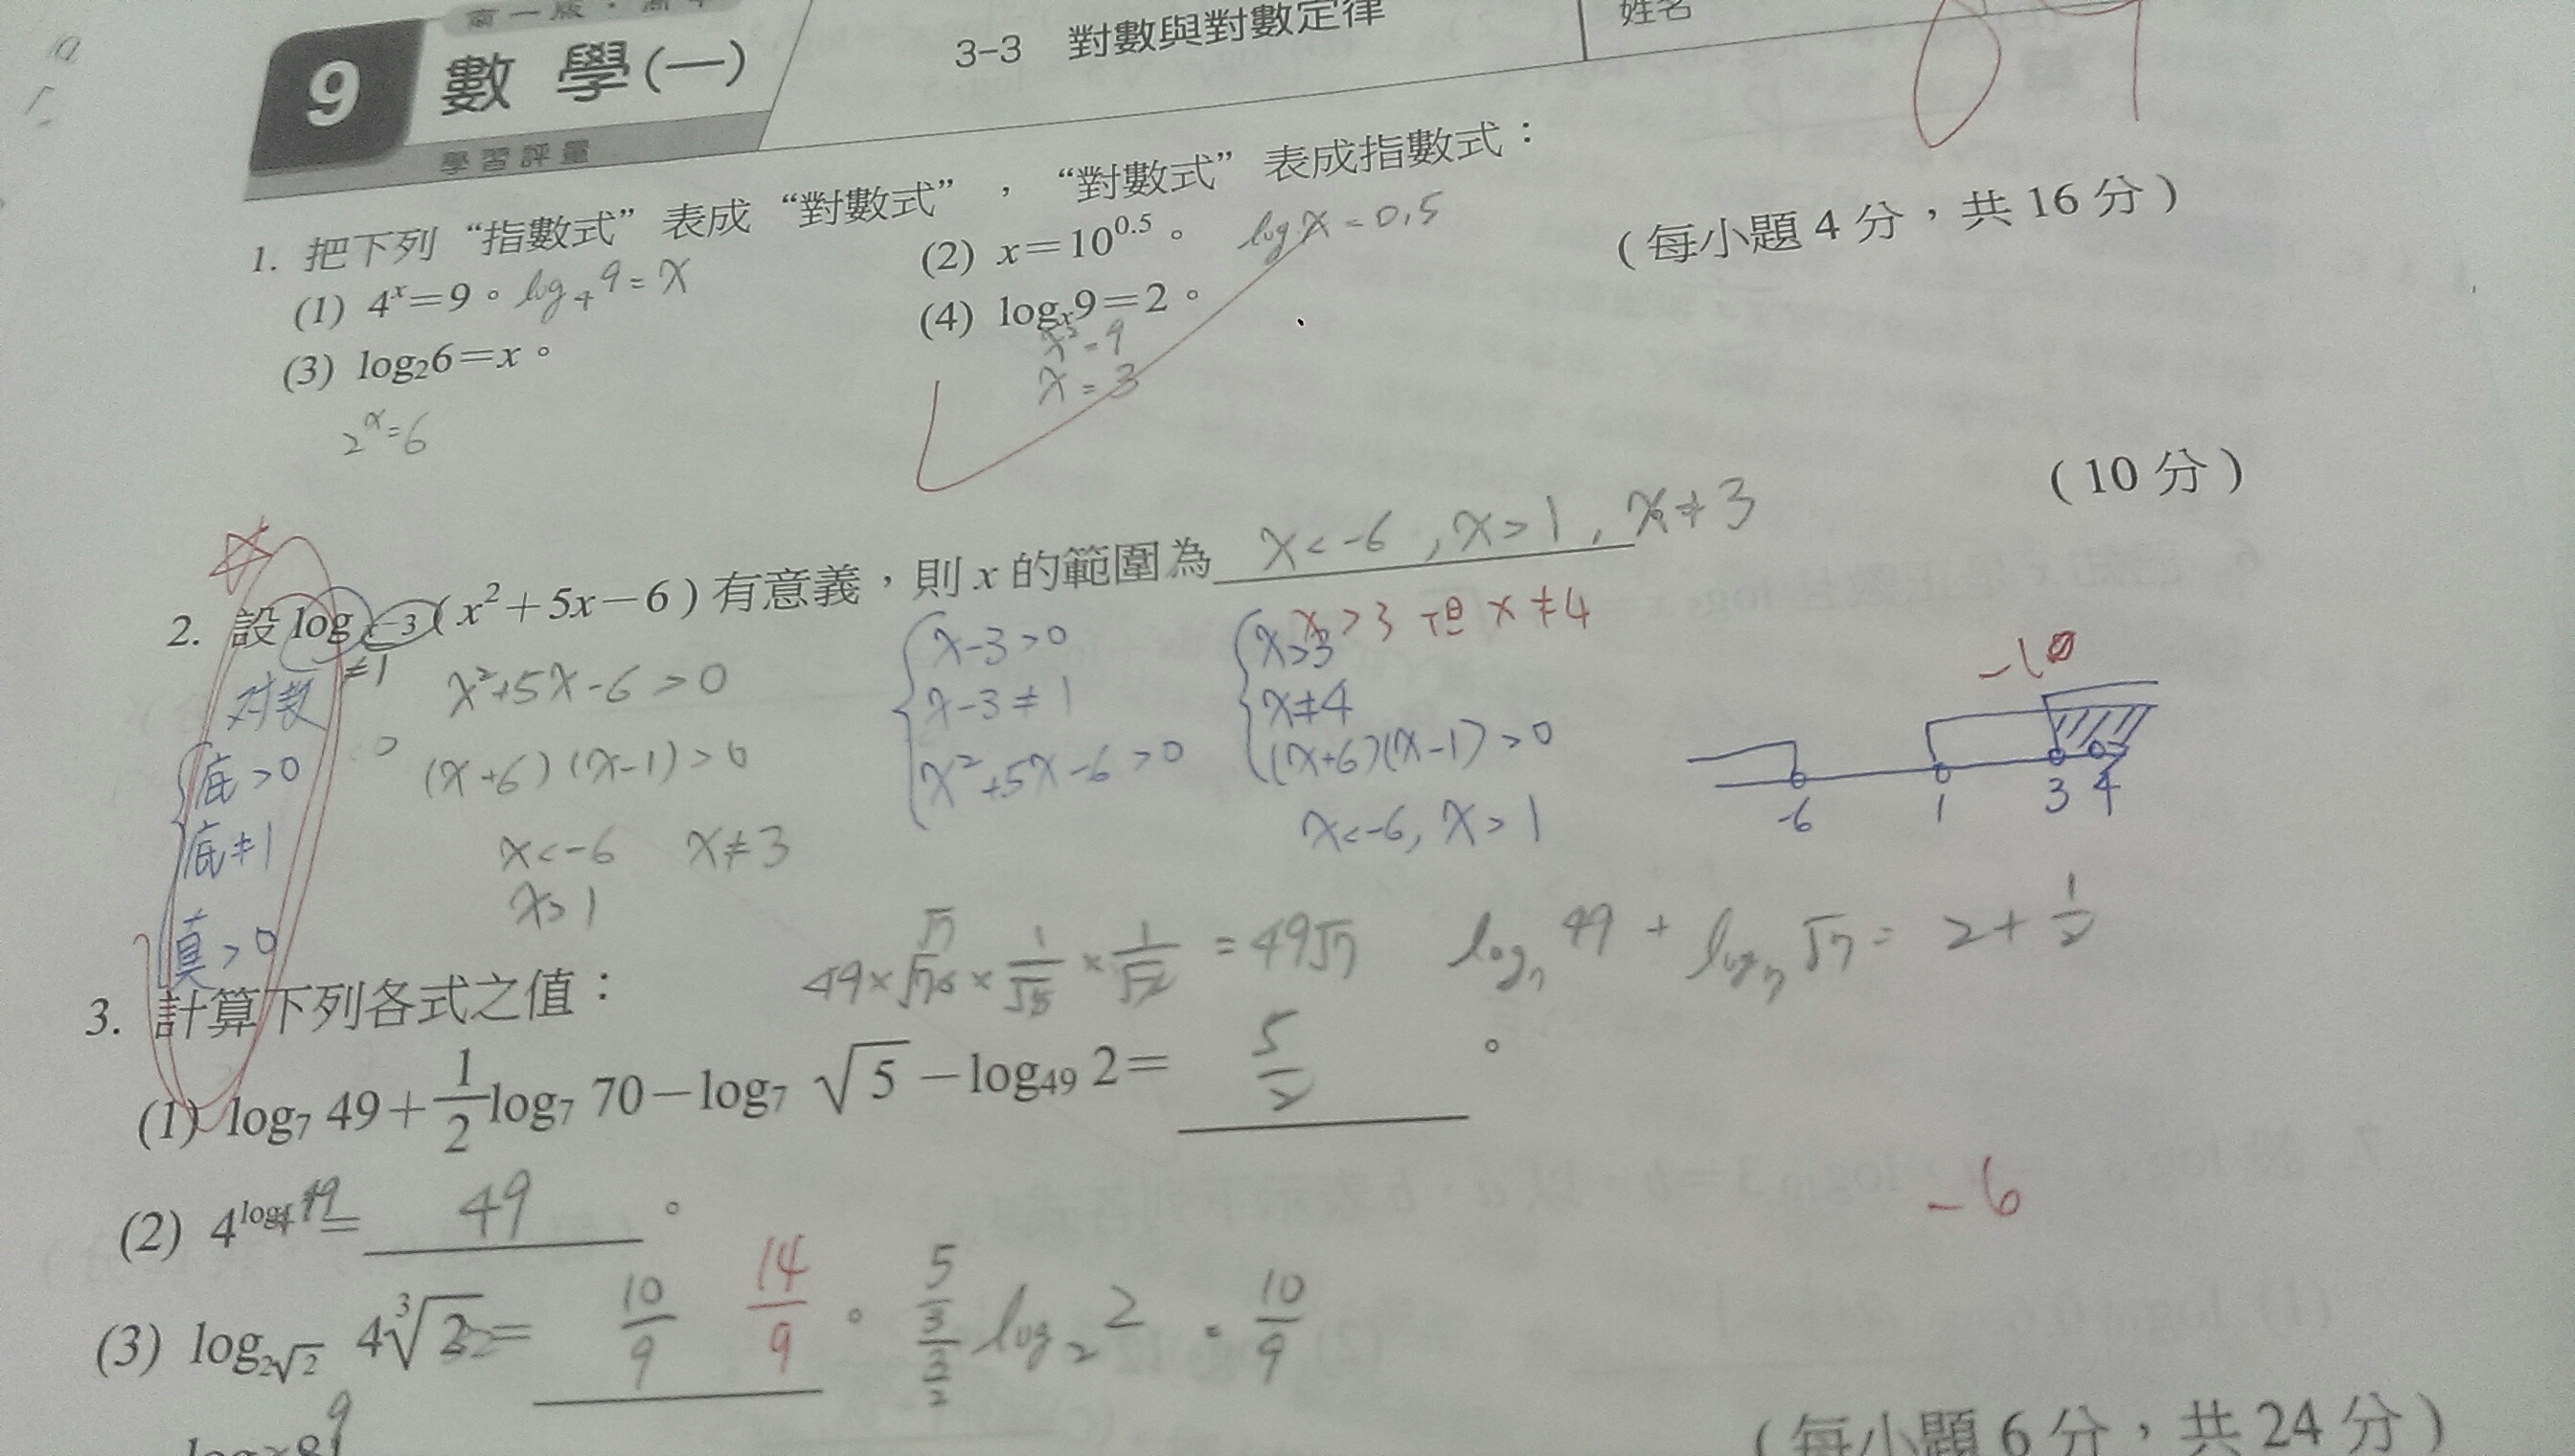 9 數 學(一)
學習評量
3-3 對數與對數定律
姓名
1. 把下列“指數式”表成“對數式”，“對數式”表成指數式：
(每小題 4 分，共 16 分)
(1) 4ˣ=9。 log₄9=x
(2) x=10⁰·⁵。 log x=0.5
(3) log₂6=x。
2ˣ=6
(4) logₓ9=2。
x²=9
x=3
(10 分)
2. 設 logₓ₋₃(x²+5x−6)有意義，則 x 的範圍為 x<-6, x>1, x≠3
x>3 但 x≠4
≠1
对数
底>0
底≠1
真>0
x²+5x-6>0
(x+6)(x-1)>0
x<-6 x≠3
x>1
x-3>0
x-3≠1
x²+5x-6>0
x>3
x≠4
(x+6)(x-1)>0
x<-6, x>1
-10
-6 1 3 4
3. 計算下列各式之值：
=49√7 log₇49+log₇√7=2+1/2
(1) log₇ 49+1/2 log₇ 70−log₇ √5−log₄₉ 2= 5/2 。
(2) 4^log₄49= 49 。
-6
(3) log₂√2 4∛2= 10/9 14/9 。 log₂2=10/9
(每小題 6 分，共 24 分)